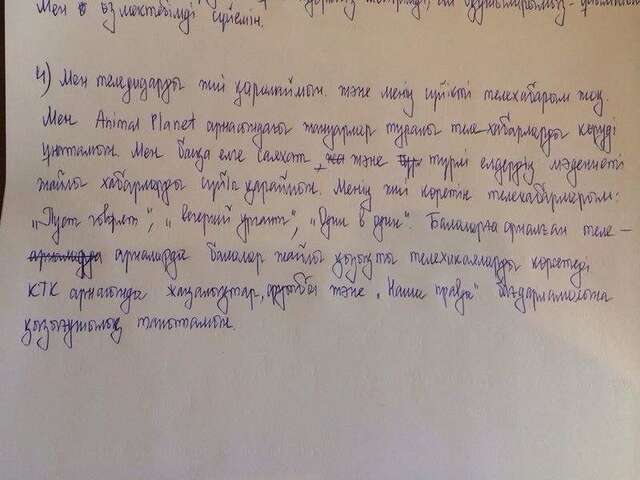 Мен өз мектебімді сүйемін.
4) Мен теледидарды жиі қараймын. және менің сүйікті телехабарым жоқ.
Мен Animal Planet арнасындағы жануарлар туралы теле хабарларды көруді
ұнатамын. Мен басқа елге саяхат, және түрлі елдердің мәдениеті
жайлы хабарларды сүйіп қараймын. Менің жиі көретін телехабарларым:
„Пусть говорят", „вечерний ургант", „Один в один". Балаларға арналған теле-
арналарда балалар жайлы қызықты телехикаяларды көрсетеді
КТК арнасында жаңалықтар, және „Наша правда" бағдарламасына
қызығушылық танытамын.